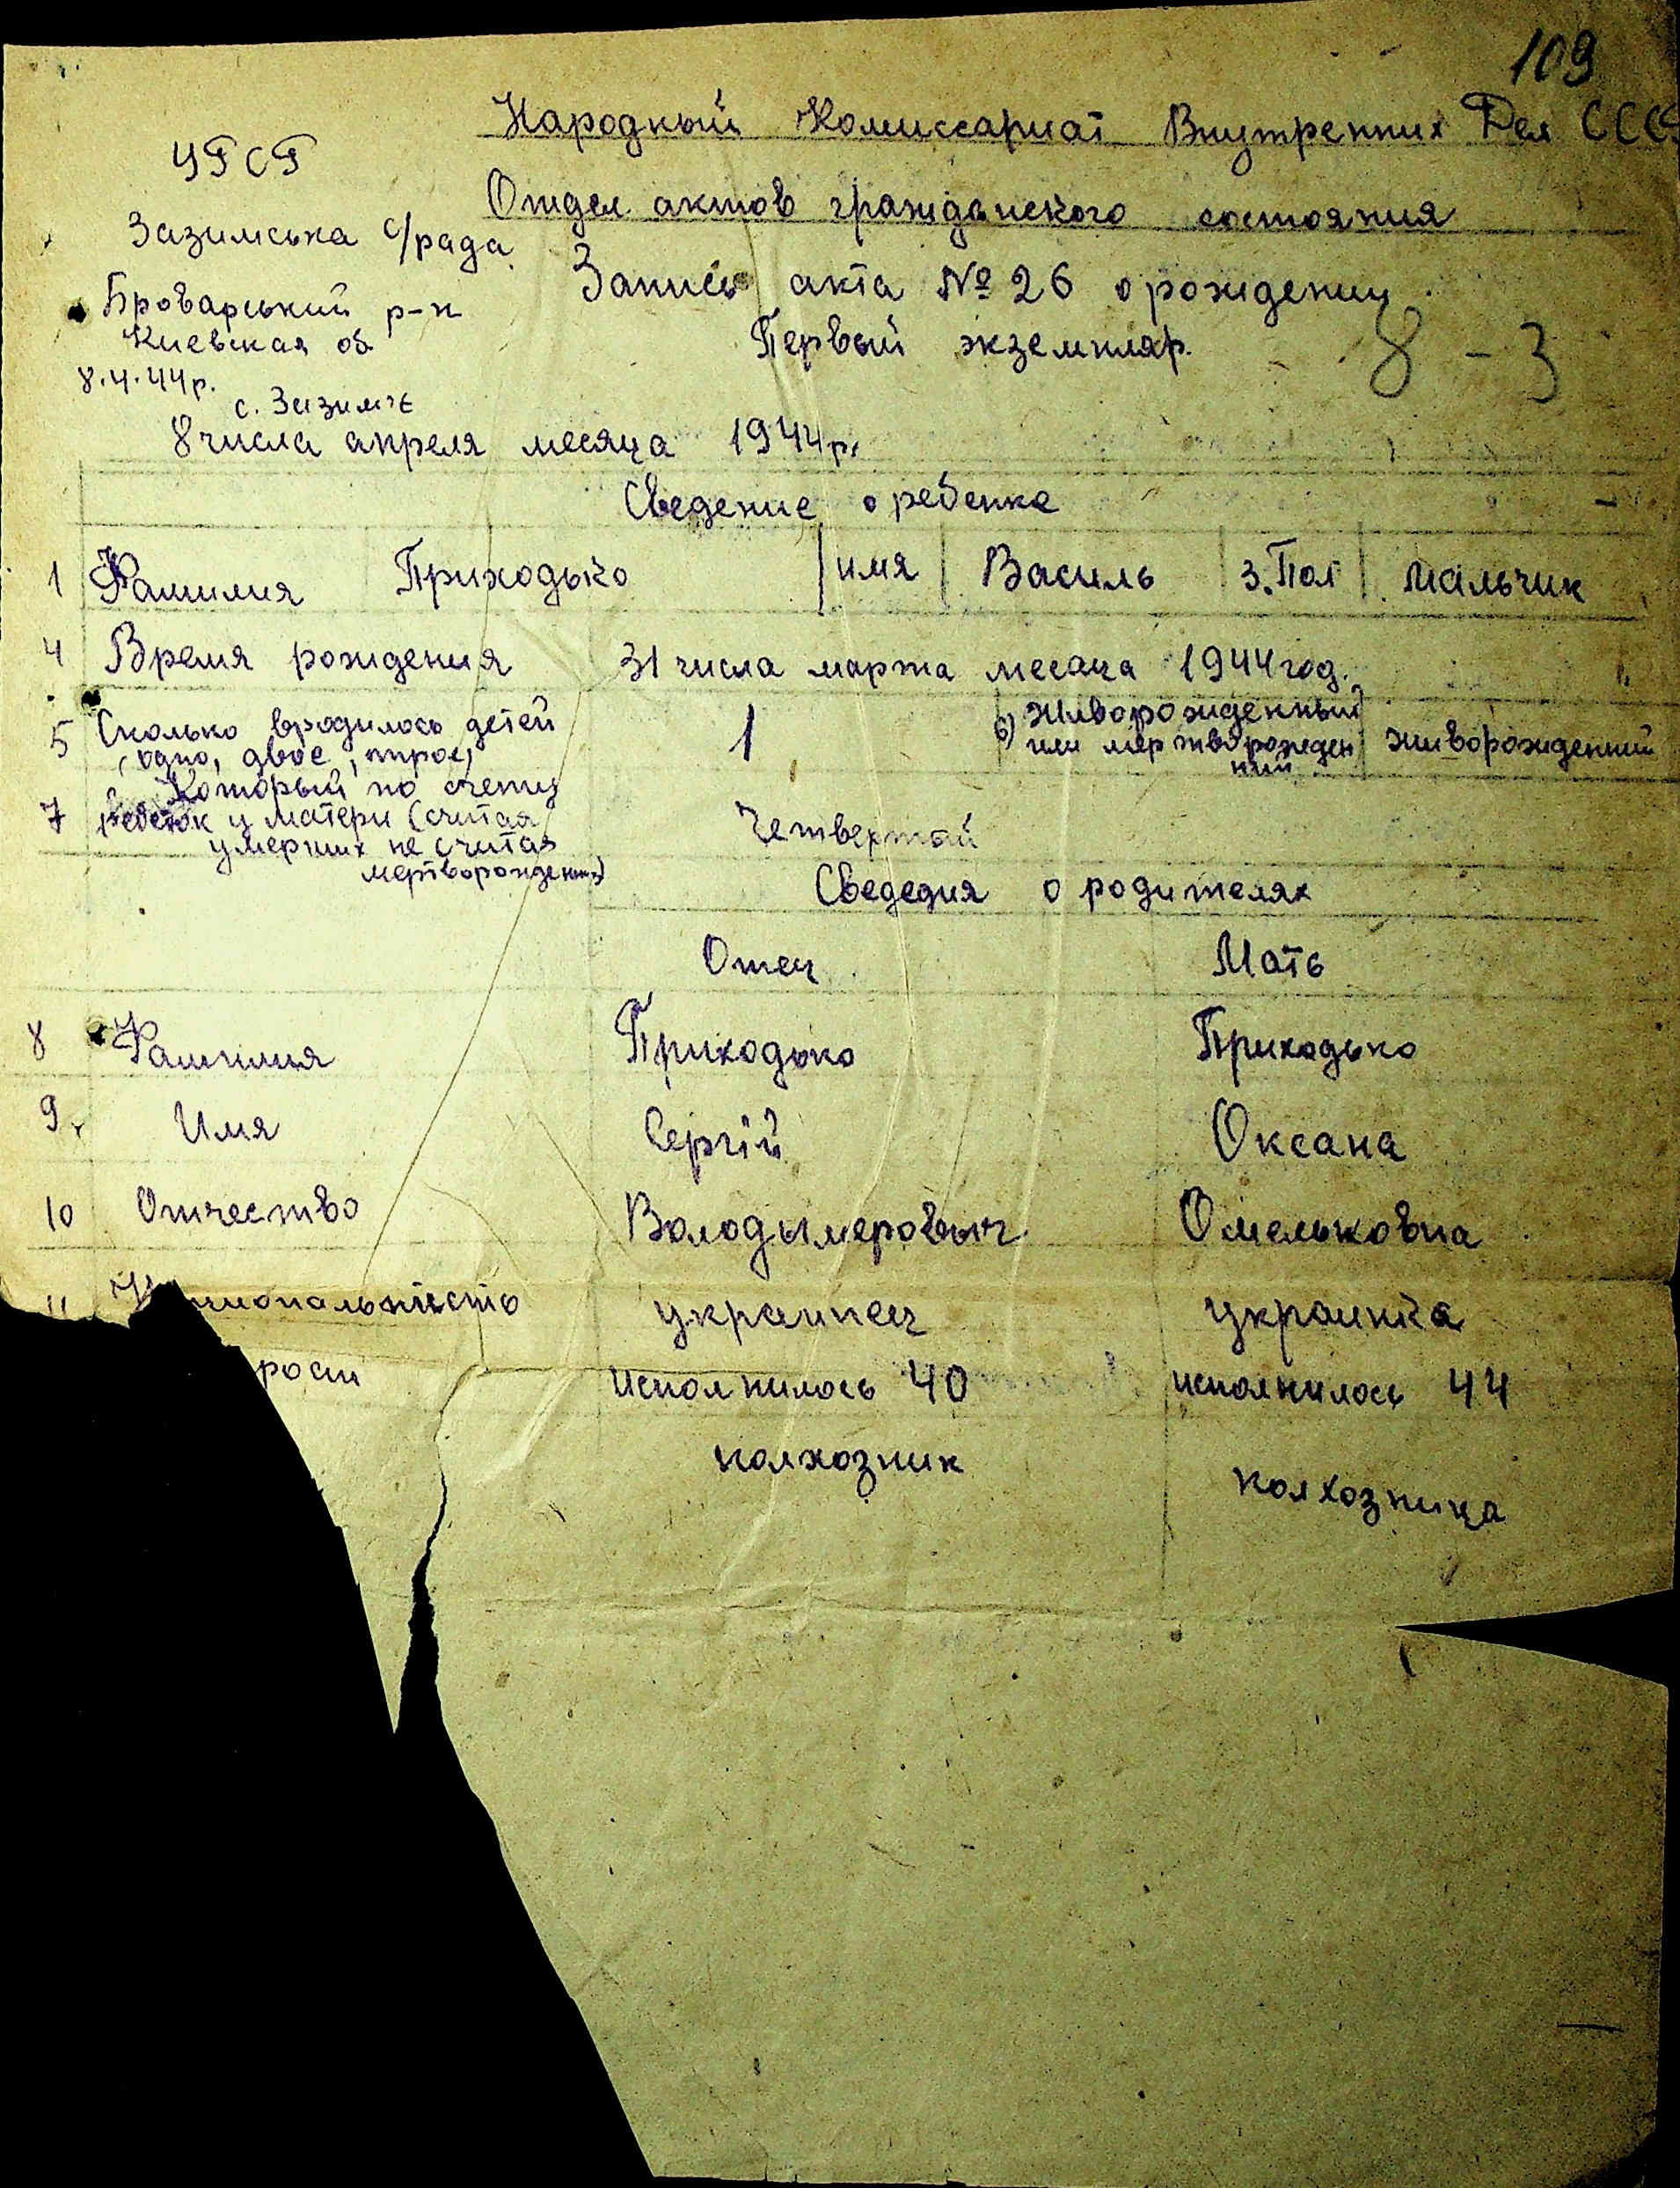 109
Народный Комиссариат Внутренних Дел СССР
Отдел актов гражданского состояния
Зазимська с/рада
Запись акта № 26 о рождении
Броварський р-н
Киевская об.
Первый экземпляр.
8 - 3
8.4.44р.
с. Зазимʼє
8 числа апреля месяца 1944р.
Сведение о ребенке
1 Фамилия Приходько имя Василь 3. Пол мальчик
4 Время рождения 31 числа марта месаца 1944 год.
5 Сколько вродилось детей (одно, двое, трое) 1 6) Живорожденный или мертворожденний живорожденний
7 Который по счету ребенок у матери (считая умерших не считая мертворожденных) Четвертый
Сведедия о родителях
Отец Мать
8 Фамилия Приходько Приходько
9. Имя Сергій Оксана
10 Отчество Володымеровыч Омельковна
11 украинец украинка
рост исполнилось 40 исполнилось 44
колхозник колхозница